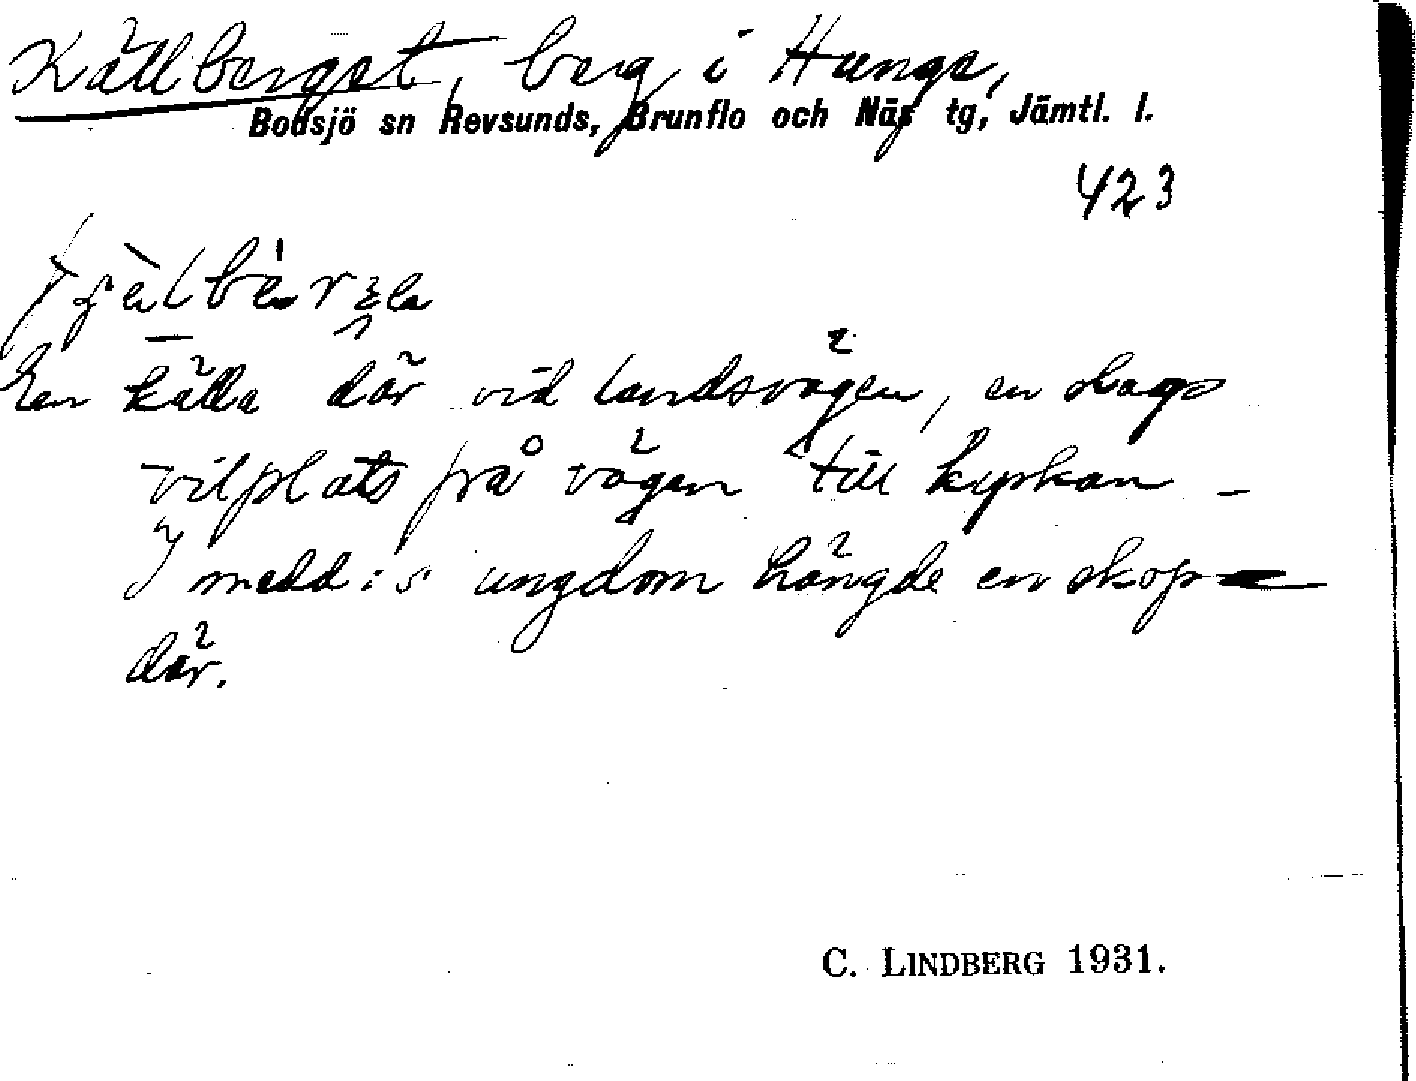 Källberget, berg i Hunge,
Bodsjö sn Revsunds, Brunflo och Näs tg, Jämtl. l.
423
En källa där vid landsvägen, en slags
vilplats på vägen till kyrkan –
I medd:s ungdom hängde en skopa
där.
C. LINDBERG 1931.